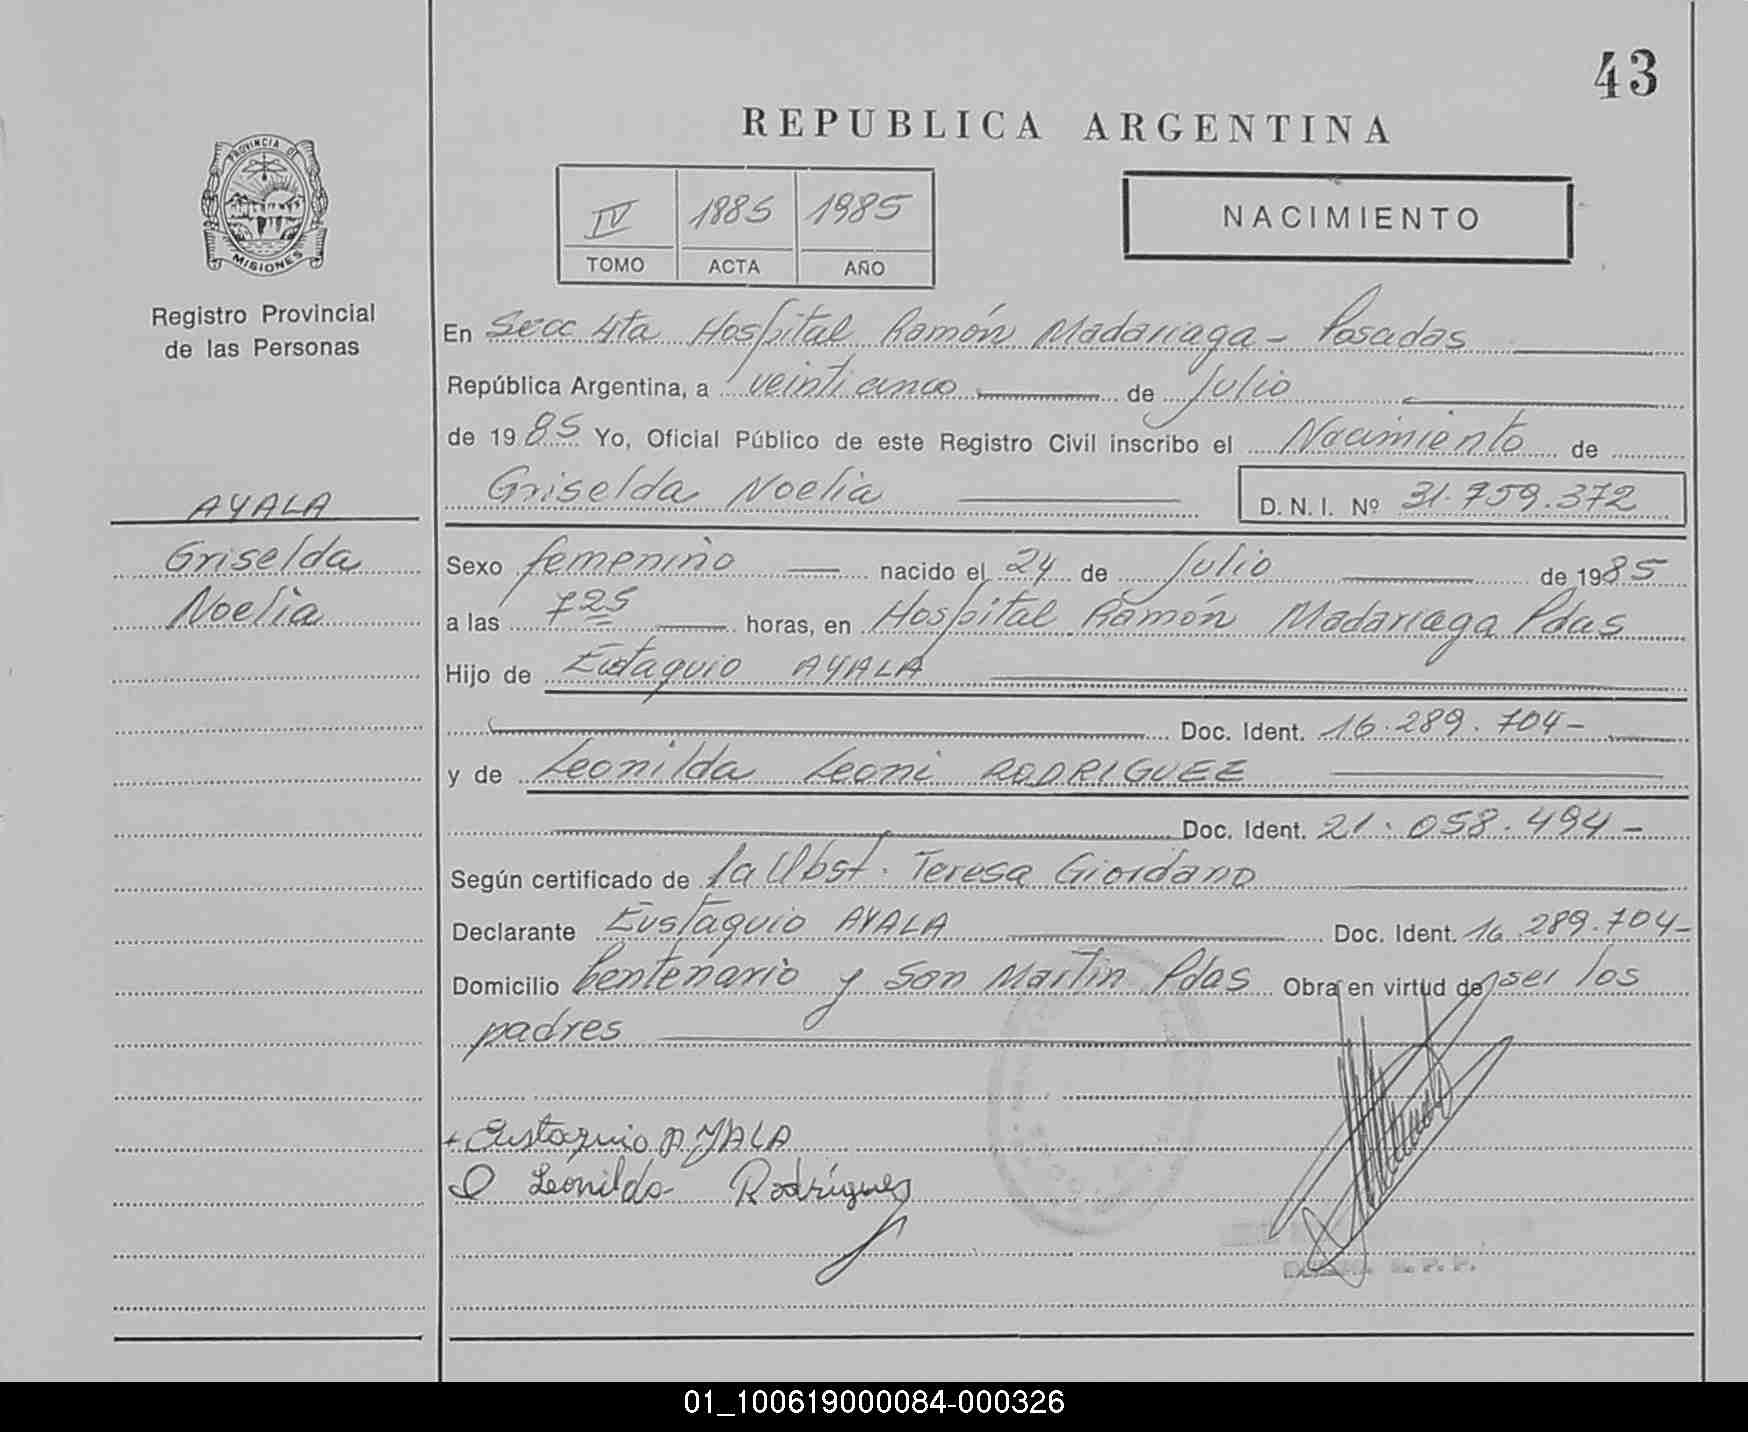 43
REPUBLICA ARGENTINA
PROVINCIA DE
MISIONES
IV 1885 1985
TOMO ACTA AÑO
NACIMIENTO
Registro Provincial
de las Personas
En Secc 4ta Hospital Ramón Madariaga - Posadas
República Argentina, a veinticinco de Julio
de 1985 Yo, Oficial Público de este Registro Civil inscribo el Nacimiento de
Griselda Noelia D. N. I. Nº 31.759.372
AYALA
Griselda
Noelia
Sexo femenino nacido el 24 de Julio de 1985
a las 725 horas, en Hospital Ramón Madariaga Pdas
Hijo de Eustaquio AYALA
Doc. Ident. 16.289.704-
y de Leonilda Leoni RODRIGUEZ
Doc. Ident. 21.058.494-
Según certificado de la Obst. Teresa Giordano
Declarante Eustaquio AYALA Doc. Ident. 16.289.704-
Domicilio Centenario y San Martín Pdas Obra en virtud de ser los
padres
Eustaquio AYALA
Leonilda Rodríguez
01_100619000084-000326